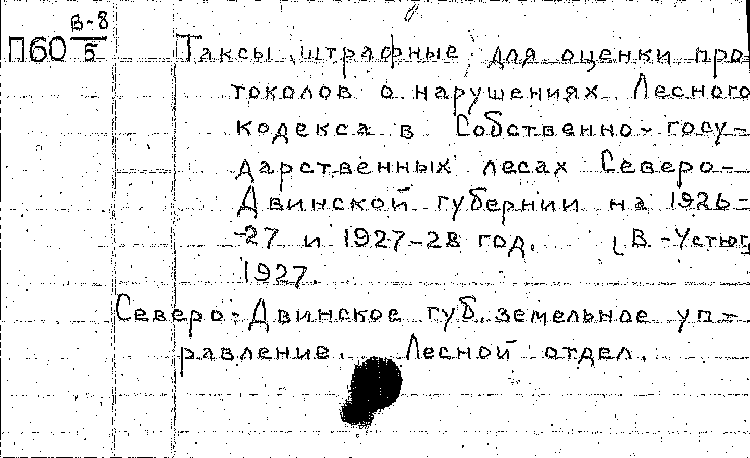 В-8
П60 5 Таксы штрафные для оценки про
токолов о нарушениях Лесного
кодекса в Собственно-госу-
дарственных лесах Северо-
Двинской губернии на 1926-
-27 и 1927-28 год. [В-Устюг,
1927.
Северо-Двинское губ. земельное уп-
равление. Лесной отдел.